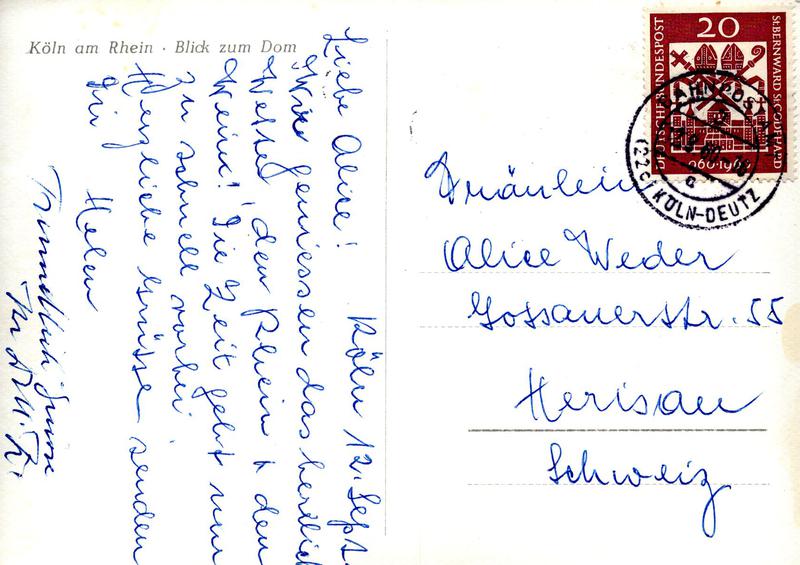 Köln am Rhein · Blick zum Dom
Köln 12. Sept.
Liebe Alice!
Wir geniessen das herrlich
Wetter, den Rhein + den
Wein! Die Zeit geht nur
zu schnell vorbei
Herzliche Grüsse senden
Dir Helen
20
DEUTSCHE BUNDESPOST
St.BERNWARD St.GODEHARD
960·1960
BAHNPOSTAMT
(22c) KÖLN-DEUTZ
c
Fräulein
Alice Weder
Gossauerstr. 55
Herisau
Schweiz